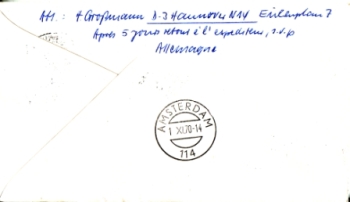 Abs.: A Großmann D-3 Hannover N14
Après 5 jours retour à l'expéditeur, s.v.p
Allemagne
AMSTERDAM
1 XI.70-14
114